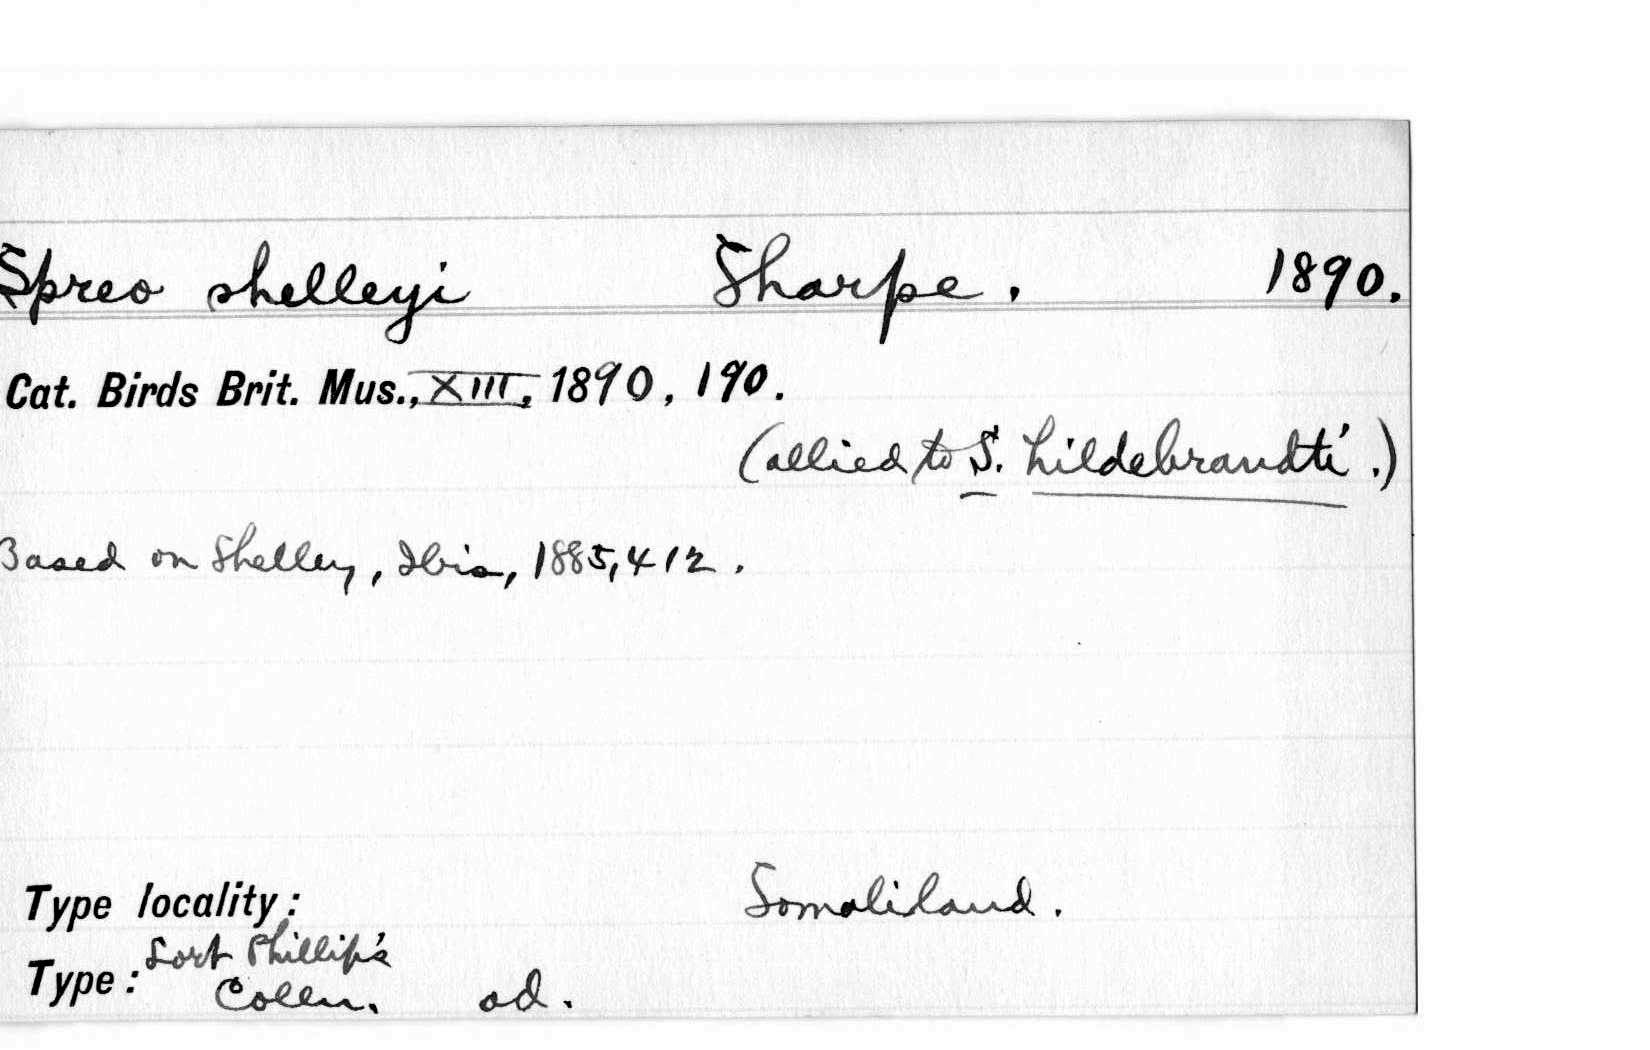 Spreo shelleyi Sharpe. 1890.
Cat. Birds Brit. Mus., XIII, 1890, 190.
(allied to S. hildebrandti.)
Based on Shelley, Ibis, 1885, 412.
Type locality: Somaliland.
Lort Phillip's
Type: Colln. ad.